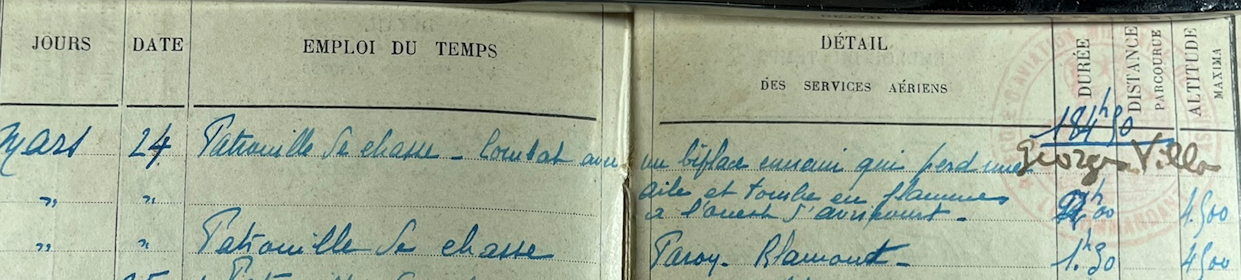 JOURS DATE EMPLOI DU TEMPS DÉTAIL DES SERVICES AÉRIENS DURÉE DISTANCE PARCOURUE ALTITUDE MAXIMA
184h30
Mars 24 Patrouille de chasse - Combat avec un biplace ennemi qui perd une Georges Villa
" " aile et tombe en flammes
à l'ouest d'avricourt - 4.500
" " Patrouille de chasse Parroy - Blamont - 1h30 4500
25 Patrouille